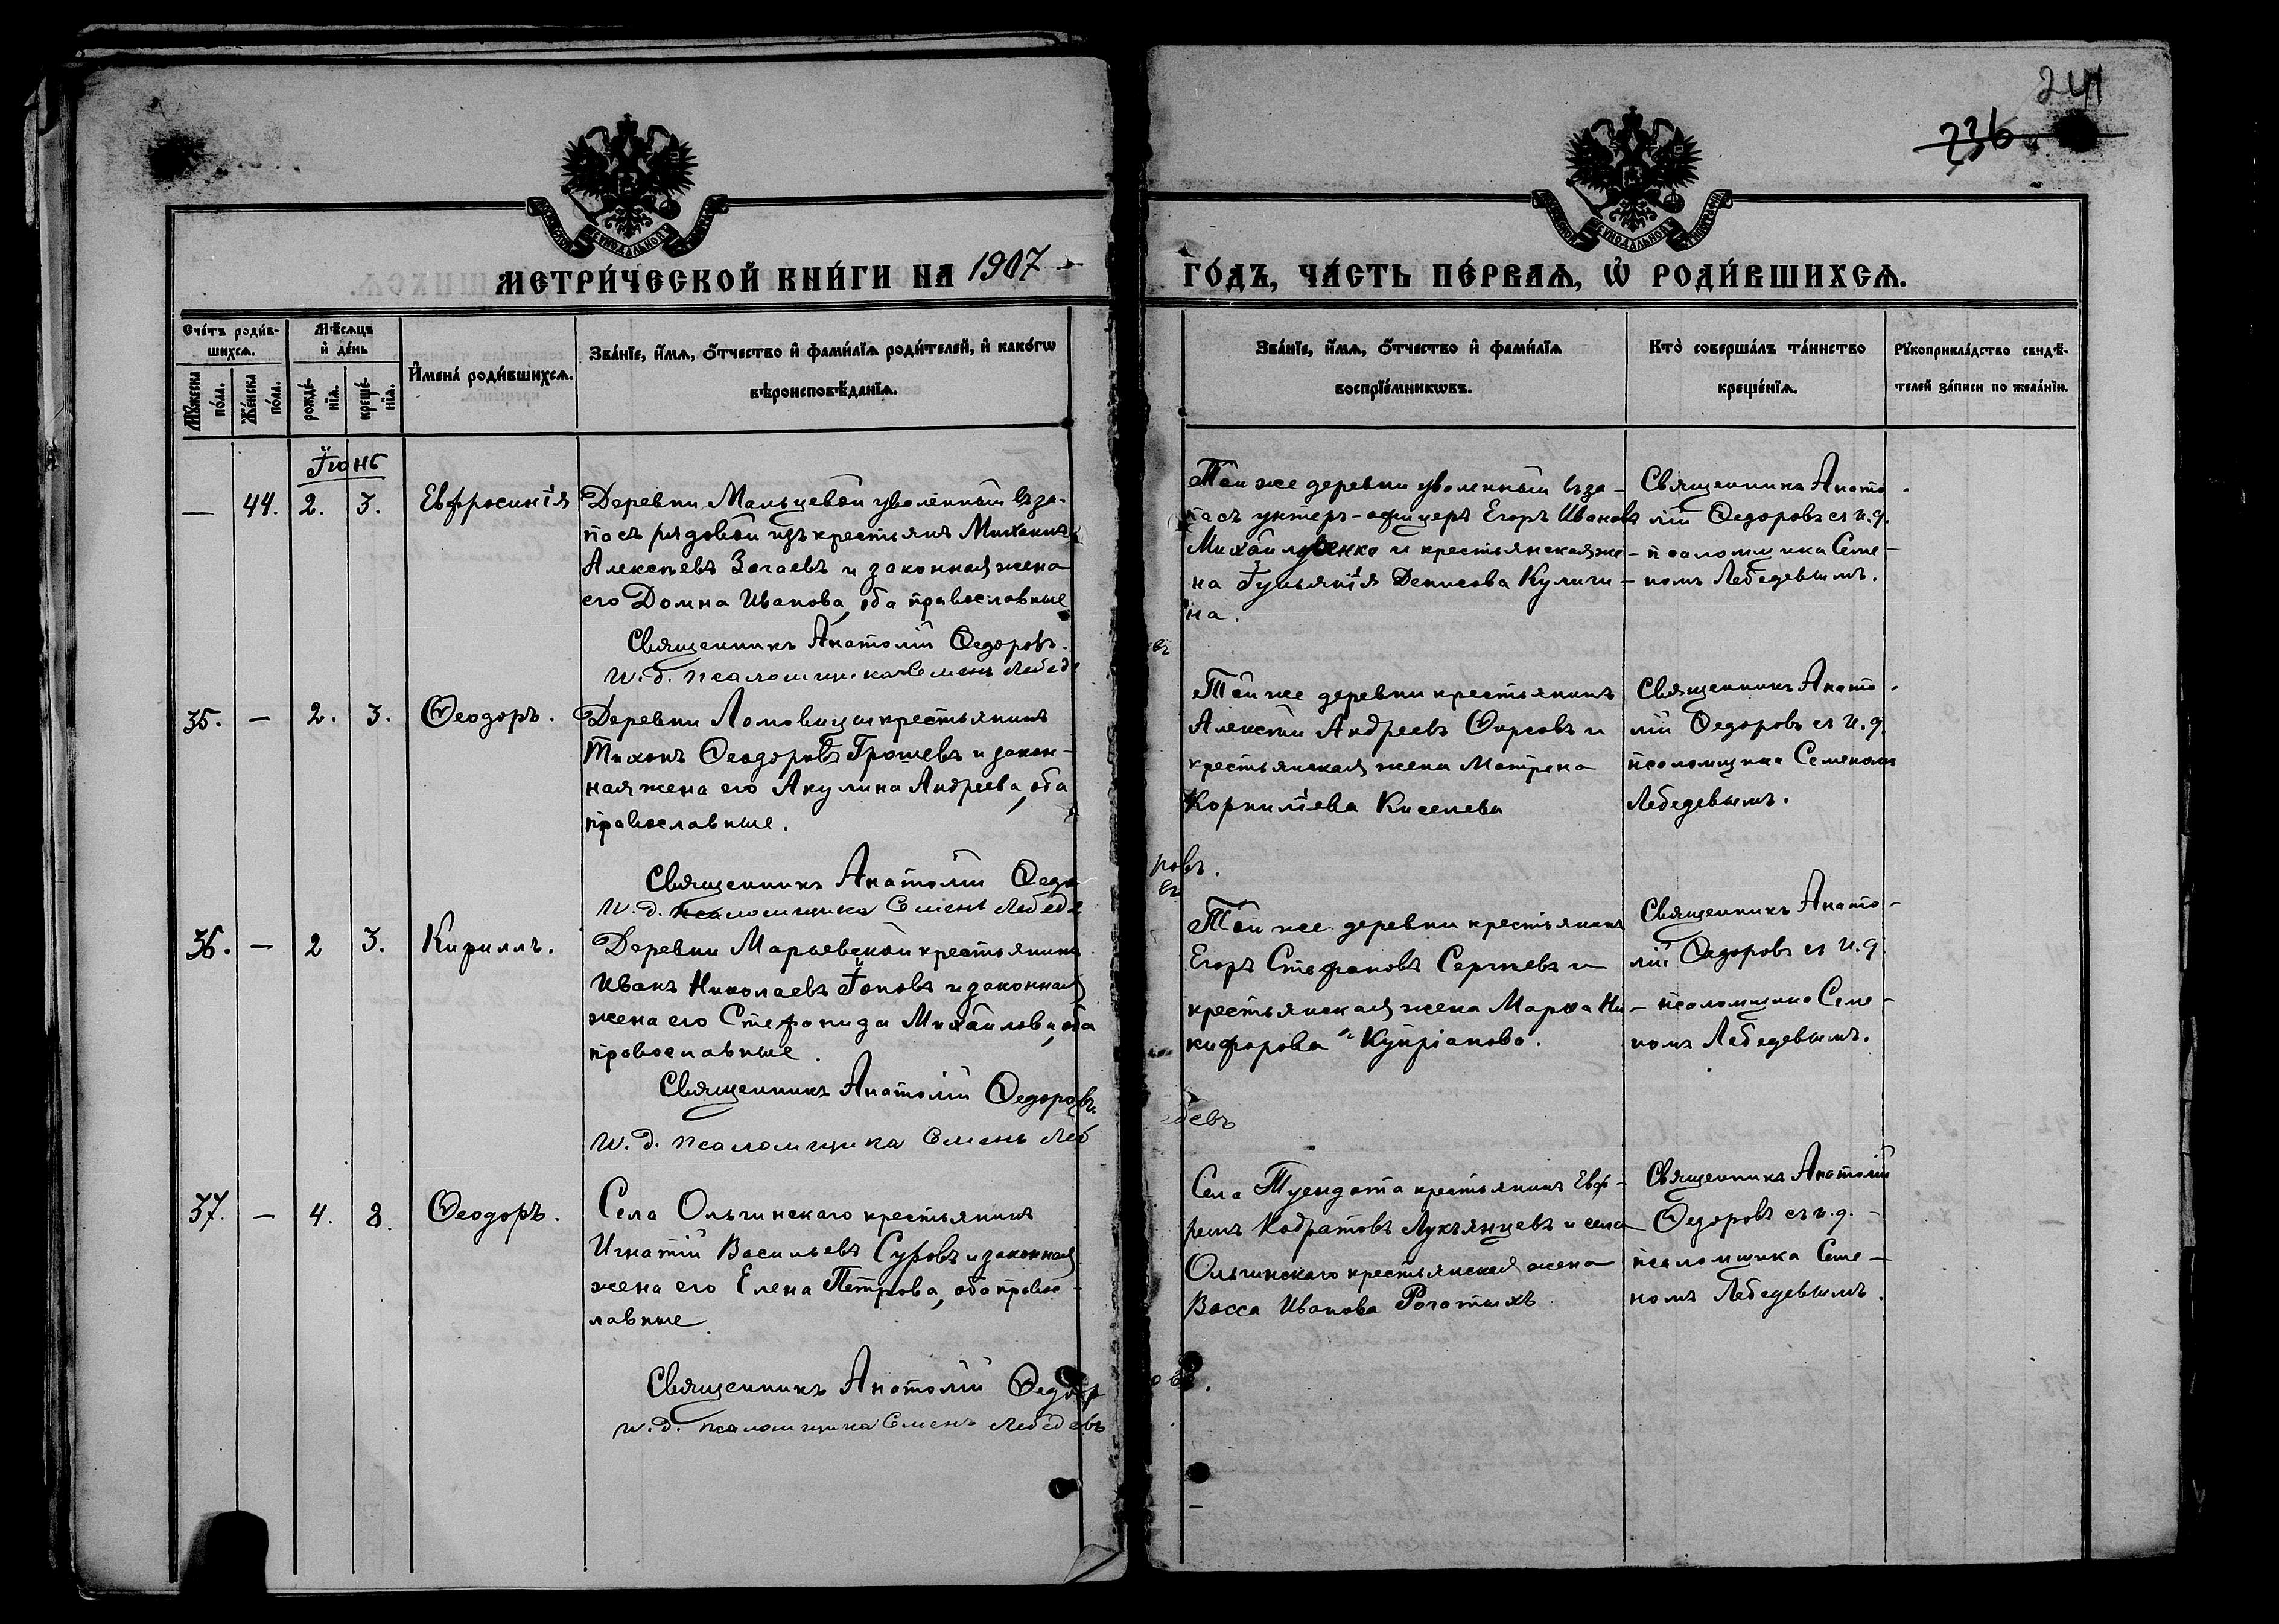 241
236
МЕТРИ́ЧЕСКОЙ КНИ́ГИ НА 1907
ГО́ДЪ, ЧА́СТЬ ПЕ́РВАѦ, Ѡ҆ РОДИ́ВШИХСѦ.
Сче́тъ роди́в-
шихсѧ.
Мѣ́сѧцъ
и҆ де́нь
И҆мена̀ роди́вшихсѧ.
Зва́нїе, и҆́мѧ, ѻ҆́тчество и҆ фами́лїѧ роди́телей, и҆ како́гѡ
вѣроисповѣ́данїѧ.
Мꙋ́жеска
по́ла.
Же́нска
по́ла.
рожде́-
нїѧ.
креще́-
нїѧ.
Зва́нїе, и҆́мѧ, ѻ҆́тчество и҆ фами́лїѧ
воспрїе́мникѡвъ.
Кто̀ соверша́лъ та́инство
креще́нїѧ.
Рꙋкоприкла́дство свидѣ́-
телей за́писи по жела́нїю.
Іюнь
— 44. 2. 3. Евфросинія
Деревни Мальцевой уволенный въ за-
пасъ рядовой изъ крестьянъ Михаилъ
Алексѣевъ Загаевъ и законная жена
его Домна Иванова, оба православные
Священникъ Анатолій Ѳедоровъ.
и. д. псаломщика Семенъ Лебед
евъ
Той же деревни уволенный въ за-
пасъ унтеръ-офицеръ Егоръ Ивановъ
Михайлуенко и крестьянская же-
на Іуліанія Денисова Кулиги-
на.
Священникъ Анато-
лій Ѳедоровъ съ и. д.
псаломщика Семе-
номъ Лебедевымъ.
35. — 2. 3. Ѳеодоръ.
Деревни Ломовицы крестьянинъ
Тихонъ Ѳеодоровъ Грошевъ и закон-
ная жена его Акулина Андреева, оба
православные.
Священникъ Анатолій Ѳедо
ровъ.
и. д. псаломщика Семенъ Лебеде
въ
Той же деревни крестьянинъ
Алексѣй Андреевъ Фирсовъ и
крестьянская жена Матрена
Корниліева Киселева
Священникъ Анато-
лій Ѳедоровъ съ и. д.
псаломщика Семеномъ
Лебедевымъ.
36. — 2 3. Кириллъ.
Деревни Марьевской крестьянинъ
Иванъ Николаевъ Іоновъ и законная
жена его Стефанида Михайлова, оба
православные.
Священникъ Анатолій Ѳедоровъ.
и. д. псаломщика Семенъ Леб
едевъ
Той же деревни крестьянинъ
Егоръ Стефановъ Сергѣевъ и
крестьянская жена Марѳа Ни-
кифорова Купріанова.
Священникъ Анато-
лій Ѳедоровъ съ и. д.
псаломщика Семе-
номъ Лебедевымъ.
37. — 4. 8. Ѳеодоръ.
Села Ольгинскаго крестьянинъ
Игнатій Васильевъ Суровъ и законная
жена его Елена Петрова, оба правос-
лавные
Священникъ Анатолій Ѳедор
овъ.
и. д. псаломщика Семенъ Лебедевъ
Села Туендата крестьянинъ Евф-
ремъ Кодратовъ Лукьянцевъ и села
Ольгинскаго крестьянская жена
Васса Иванова Рогатыхъ
Священникъ Анатолій
Ѳедоровъ съ и. д.
псаломщика Семе-
номъ Лебедевымъ.